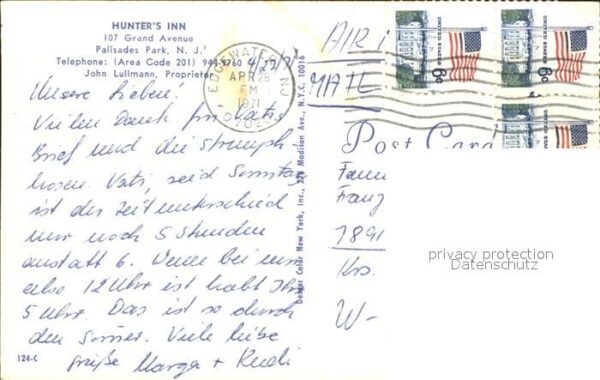 HUNTER'S INN
107 Grand Avenue
Palisades Park, N. J.
Telephone: (Area Code 201) 944-9760
John Lullmann, Proprietor
4/27/71
Unsere Lieben!
Vielen Dank für Vatis
Brief und die Strumpf-
hosen. Vati, seid Sonntag
ist der Zeitunterschied
nur noch 5 Stunden
anstatt 6. Wenn bei uns
also 12 Uhr ist habt Ihr
5 Uhr. Das ist so durch
den Sommer. Viele liebe
Grüße Marga + Rudi
124-C
Dexter Color New York, Inc., 224 Madison Ave., N.Y.C. 10016
EDGEWATER, NJ
APR 28
PM
1971
07020
AIR
MAIL
UNITED STATES
6c
UNITED STATES
6c
UNITED STATES
6c
Post Card
Fam
Franz
7891
Krs.
W-
privacy protection
Datenschutz